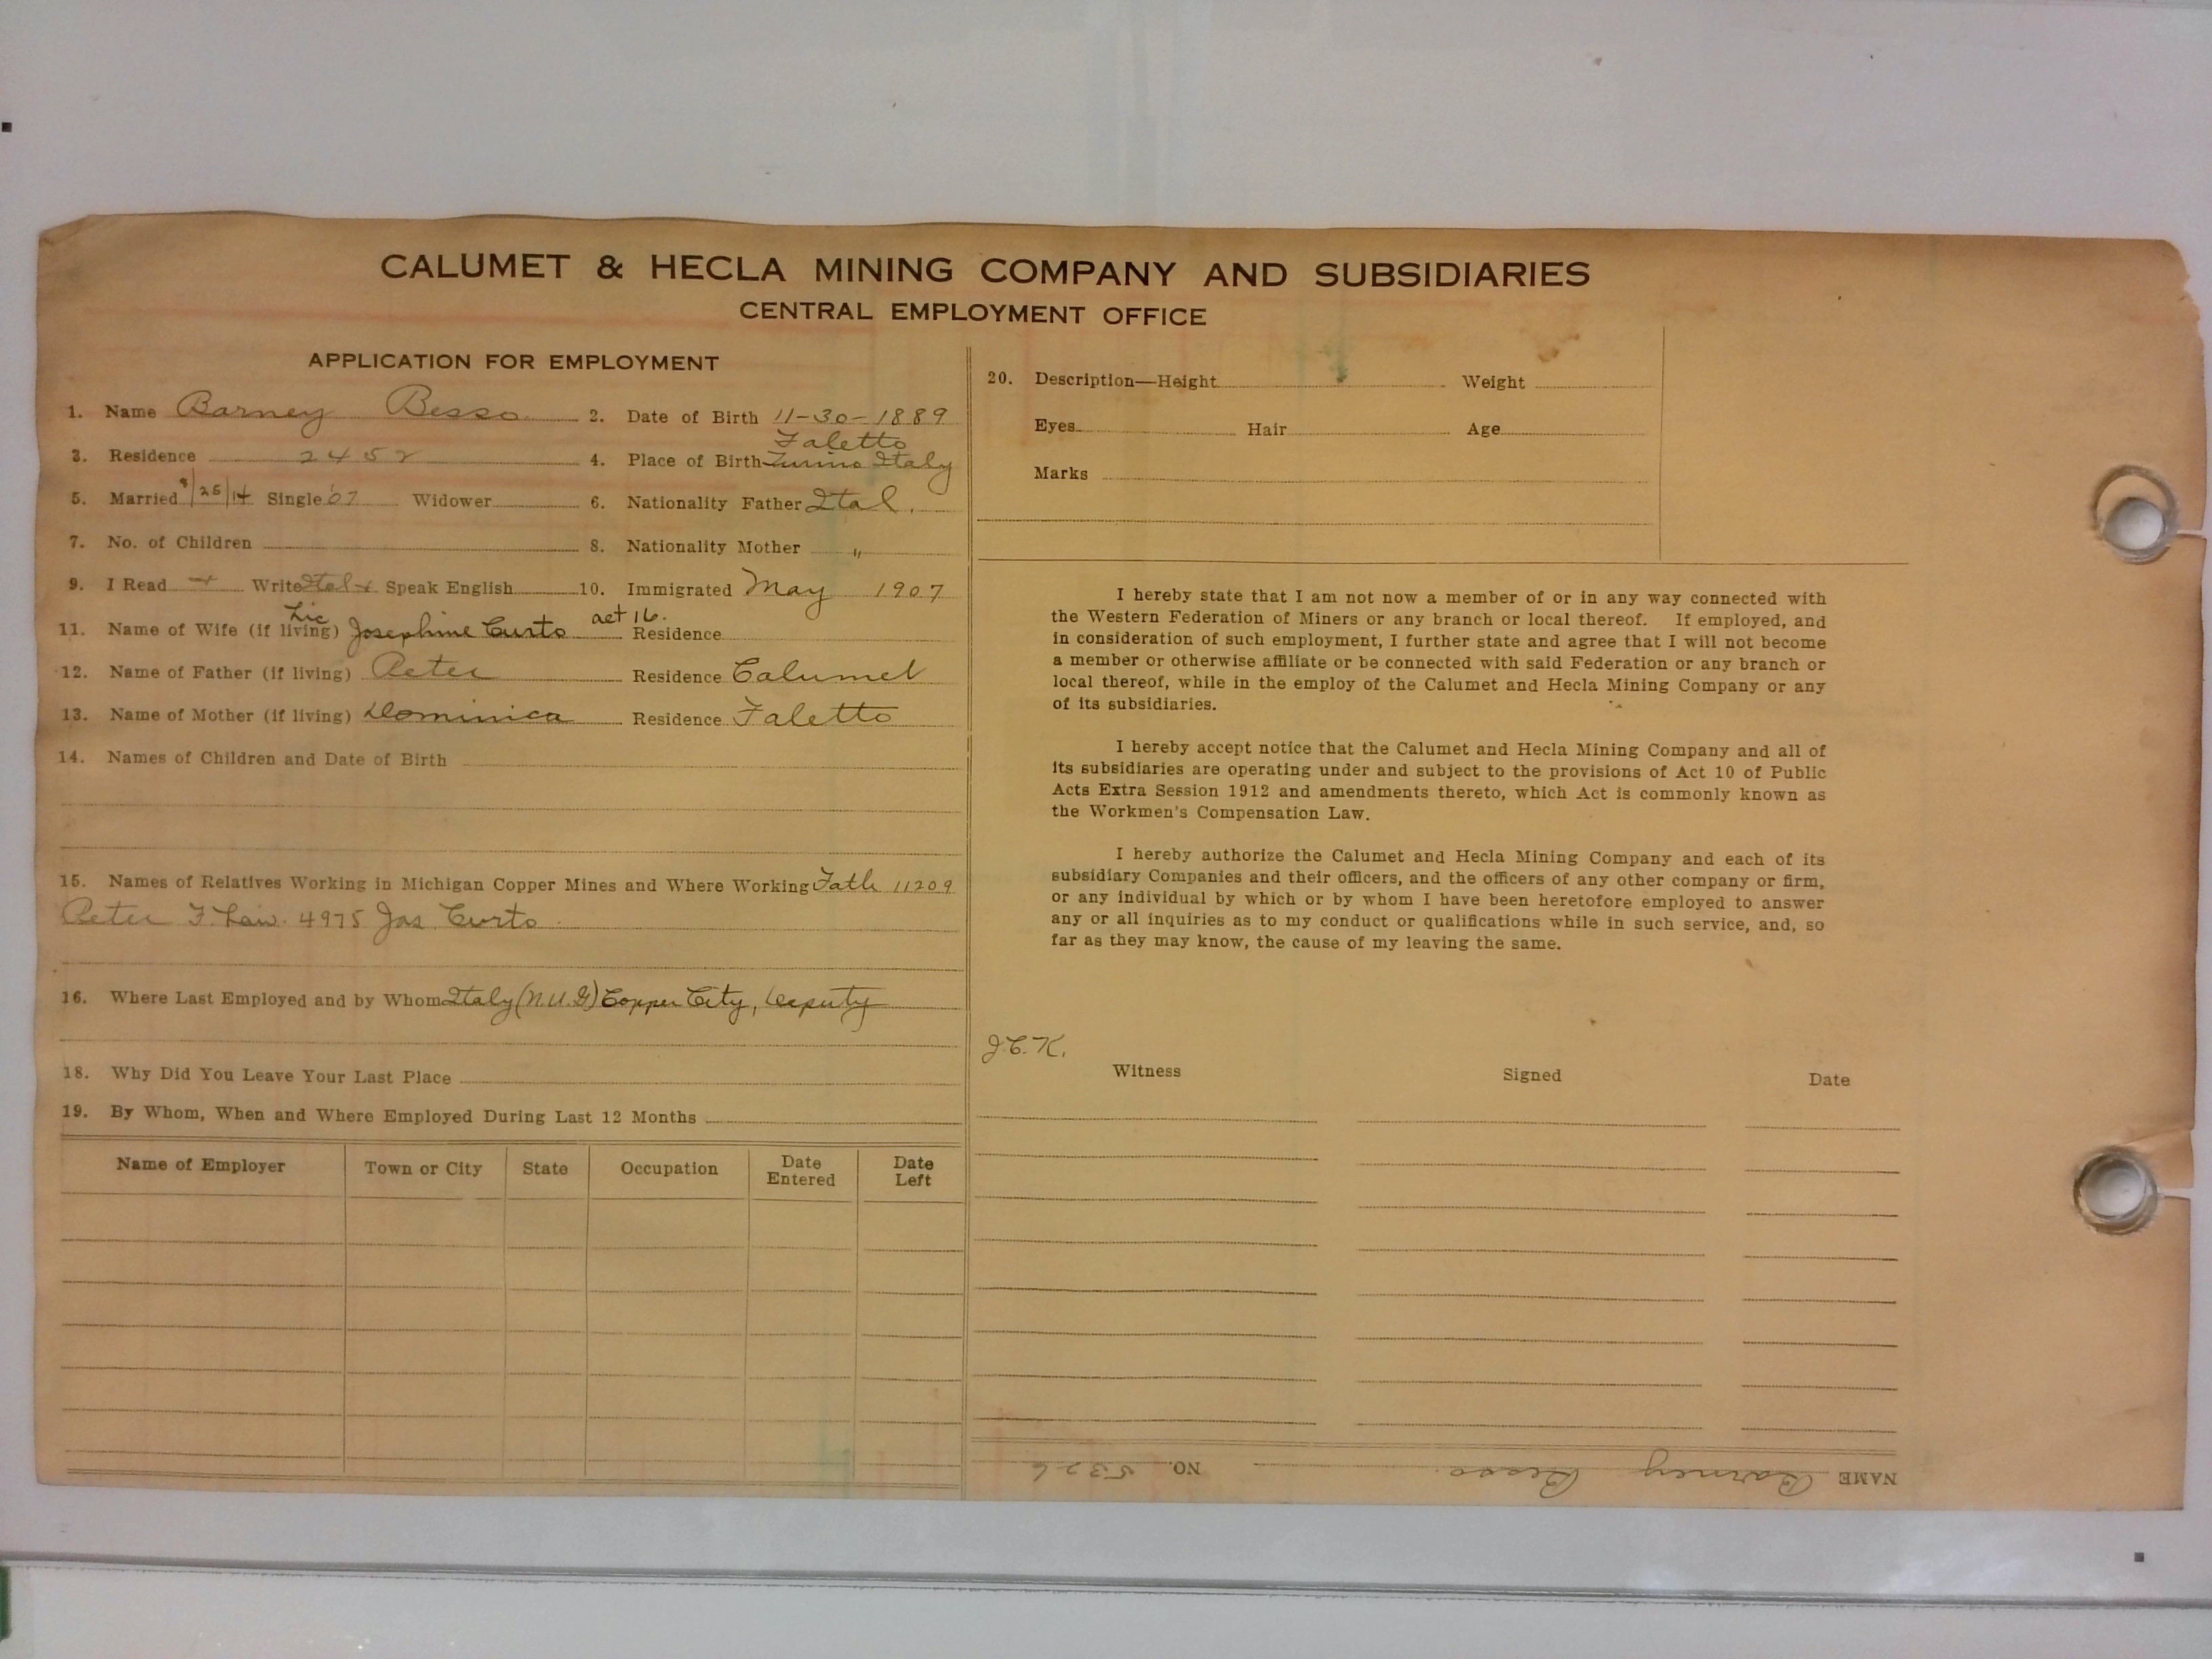 CALUMET & HECLA MINING COMPANY AND SUBSIDIARIES
CENTRAL EMPLOYMENT OFFICE
APPLICATION FOR EMPLOYMENT
1. Name Barney Besso 2. Date of Birth 11-30-1889
Faletto
3. Residence 2452 4. Place of Birth Turino Italy
5. Married 8/25/14 Single '07 Widower 6. Nationality Father Ital.
7. No. of Children 8. Nationality Mother "
9. I Read + Write Ital + Speak English 10. Immigrated May 1907
Lic act 16.
11. Name of Wife (if living) Josephine Curto Residence
12. Name of Father (if living) Peter Residence Calumet
13. Name of Mother (if living) Dominica Residence Faletto
14. Names of Children and Date of Birth
15. Names of Relatives Working in Michigan Copper Mines and Where Working Fath 11209
Peter F. Law. 4975 Jas. Curto
16. Where Last Employed and by Whom Italy (N.U.G) Copper City, Deputy
18. Why Did You Leave Your Last Place
19. By Whom, When and Where Employed During Last 12 Months
Name of Employer Town or City State Occupation Date Entered Date Left
20. Description—Height Weight
Eyes Hair Age
Marks
I hereby state that I am not now a member of or in any way connected with
the Western Federation of Miners or any branch or local thereof. If employed, and
in consideration of such employment, I further state and agree that I will not become
a member or otherwise affiliate or be connected with said Federation or any branch or
local thereof, while in the employ of the Calumet and Hecla Mining Company or any
of its subsidiaries.
I hereby accept notice that the Calumet and Hecla Mining Company and all of
its subsidiaries are operating under and subject to the provisions of Act 10 of Public
Acts Extra Session 1912 and amendments thereto, which Act is commonly known as
the Workmen's Compensation Law.
I hereby authorize the Calumet and Hecla Mining Company and each of its
subsidiary Companies and their officers, and the officers of any other company or firm,
or any individual by which or by whom I have been heretofore employed to answer
any or all inquiries as to my conduct or qualifications while in such service, and, so
far as they may know, the cause of my leaving the same.
J.C.K.
Witness Signed Date
NAME Barney Besso. NO. 5326